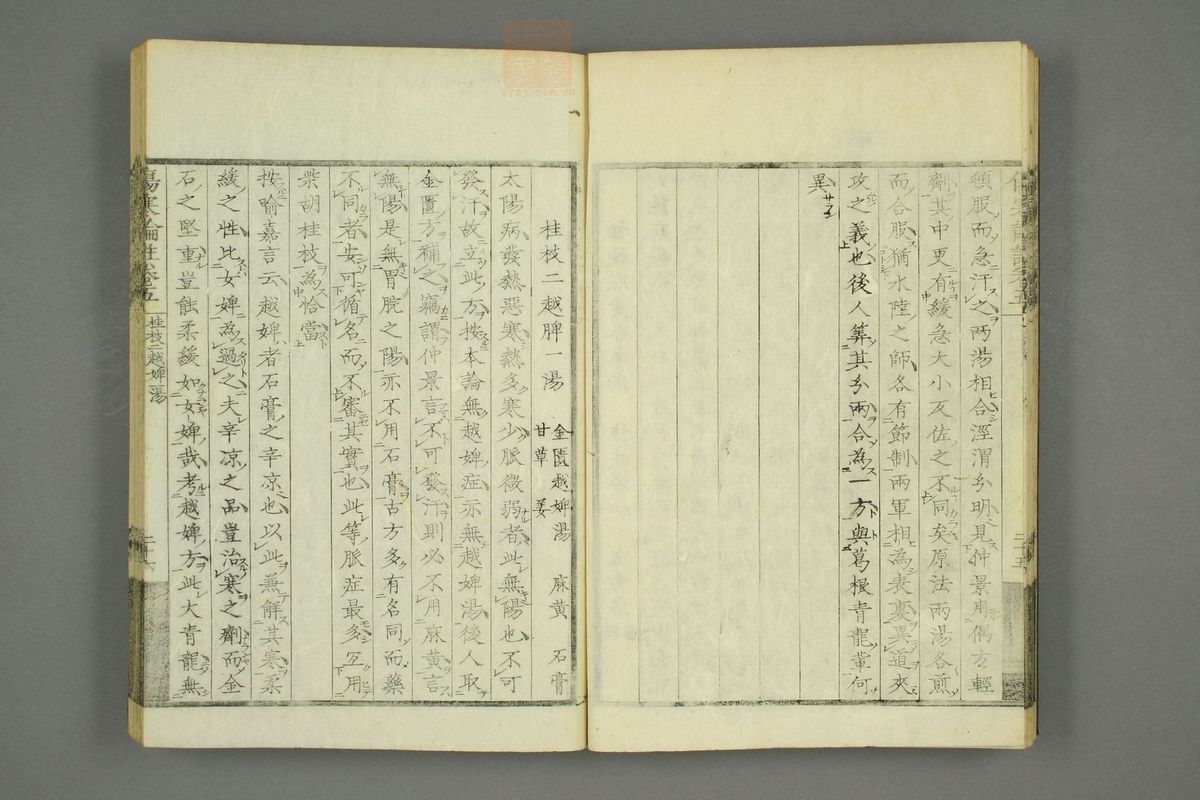 頓服而急汗之兩湯相合涇渭分明見仲景用偶方輕
劑其中更有緩急大小反佐之不同矣原法兩湯各煎
而合服猶水陸之師各有節制兩軍相為表裏異道夾
攻之義也後人筭其分兩合為一方與葛根青龍輩何
異
桂枝二越脾一湯 金匱越婢湯 麻黄 石膏
甘草 姜
太陽病發熱惡寒熱多寒少脈微弱者此無陽也不可
發汗故立此方按本論無越婢症亦無越婢湯後人取
金匱方補之竊謂仲景言不可發汗則必不用麻黄言
無陽是無胃脘之陽亦不用石膏古方多有名同而藥
不同者安可循名而不審其實也此等脈症最多互用
柴胡桂枝為恰當
按喻嘉言云越婢者石膏之辛凉也以此兼解其寒柔
緩之性比女婢為過之夫辛凉之品豈治寒之劑而金
石之堅重豈能柔緩如女婢哉考越婢方此大青龍無
傷寒論註卷五 桂枝二越婢湯